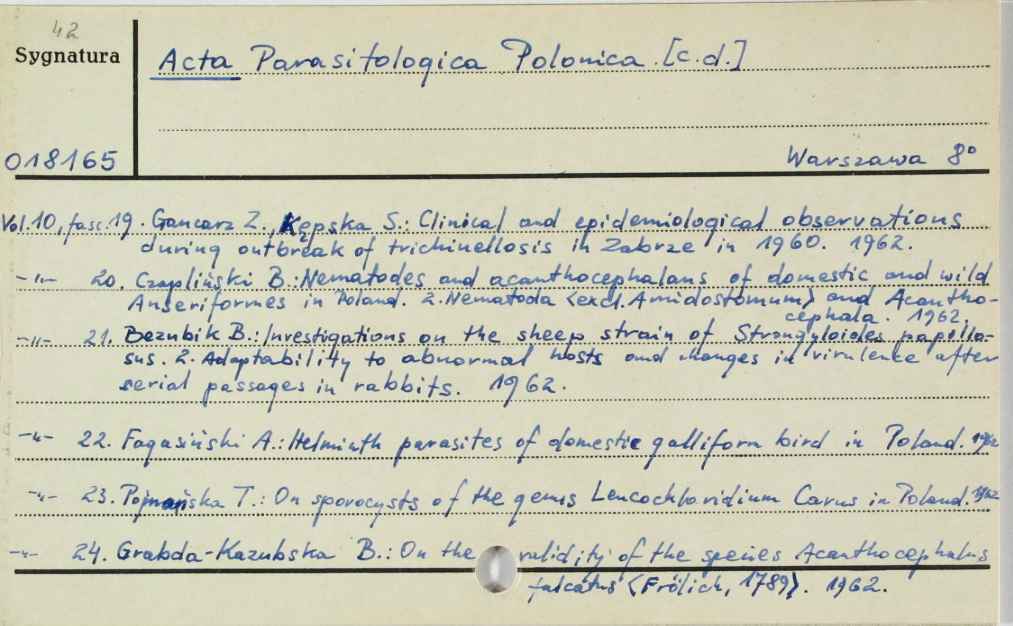 42
Sygnatura
Acta Parasitologica Polonica. [c.d.]
018165
Warszawa 8°
Vol. 10, fasc. 19. Gancarz Z., Kępska S.: Clinical and epidemiological observations
during outbreak of trichinellosis in Zabrze in 1960. 1962.
-"- 20. Czapliński B.: Nematodes and acanthocephalans of domestic and wild
Anseriformes in Poland. 2. Nematoda <excl. Amidostomum> and Acantho-
cephala. 1962.
-"- 21. Bezubik B.: Investigations on the sheep strain of Strongyloides papillo-
sus. 2. Adaptability to abnormal hosts and changes in virulence after
serial passages in rabbits. 1962.
-"- 22. Fagasiński A.: Helminth parasites of domestic galliform bird in Poland. 1962
-"- 23. Pojmańska T.: On sporocysts of the genus Leucochloridium Carus in Poland. 1962
-"- 24. Grabda-Kazubska B.: On the validity of the species Acanthocephalus
falcatus <Frölich, 1789>. 1962.